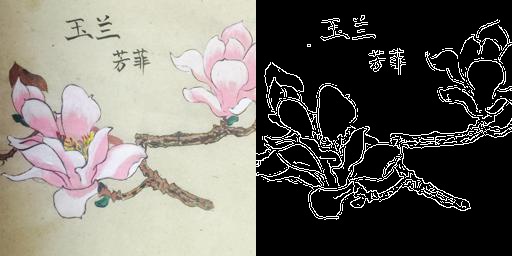 玉兰
芳菲
玉兰
芳菲